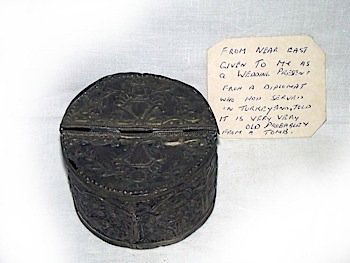 FROM NEAR EAST
GIVEN TO ME AS
A WEDDING PRESENT
FROM A DIPLOMAT
WHO HAD SERVED
IN TURKEY AND TOLD
IT IS VERY VERY
OLD PROBABLEY
FROM A TOMB.